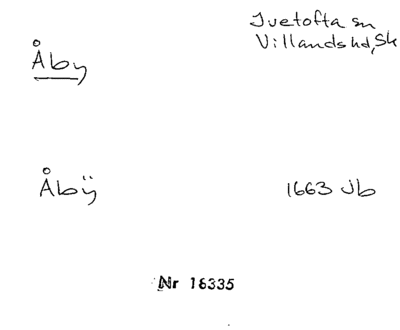 Åby
Ivetofta sn
Villands hd, Sk
Åbÿ
1663 Jb
Nr 16335